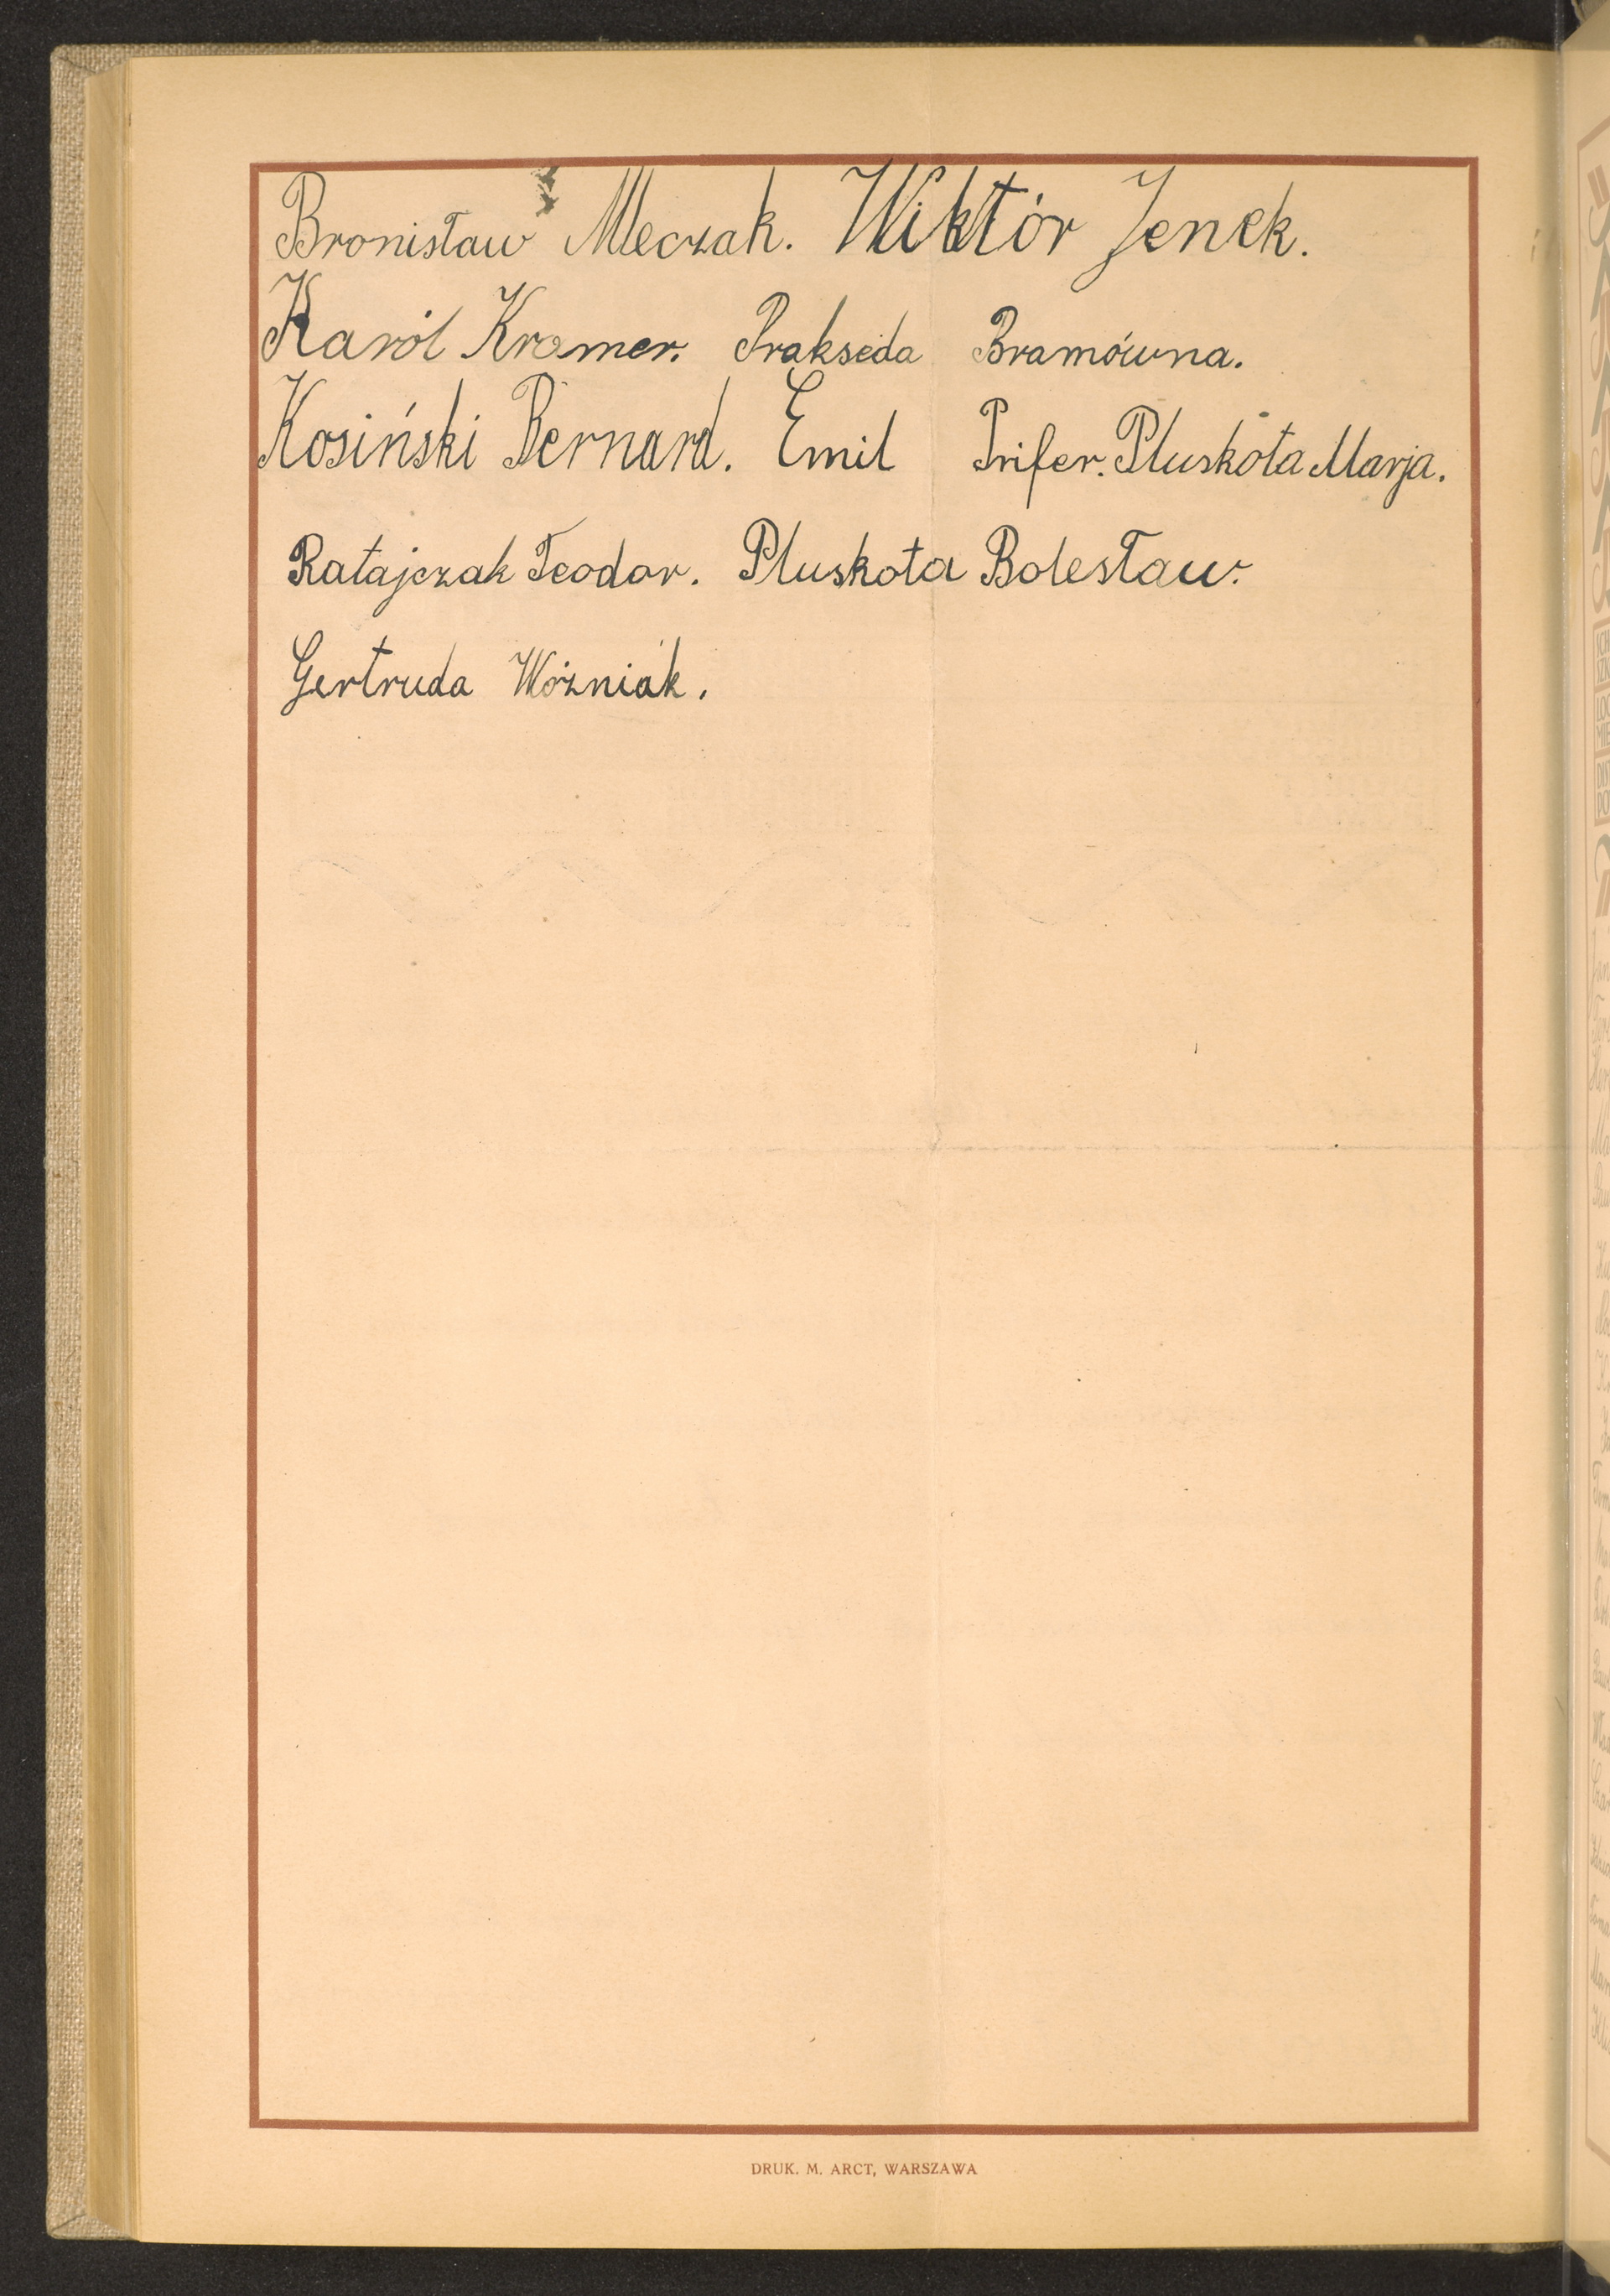 Bronisław Mleczak. Wiktór Jenek.
Karól Kramer. Prakseda Bramówna.
Kosiński Bernard. Emil Prifer. Pluskota Marja.
Ratajczak Teodor. Pluskota Bolesław.
Gertruda Woźniak.
DRUK. M. ARCT, WARSZAWA